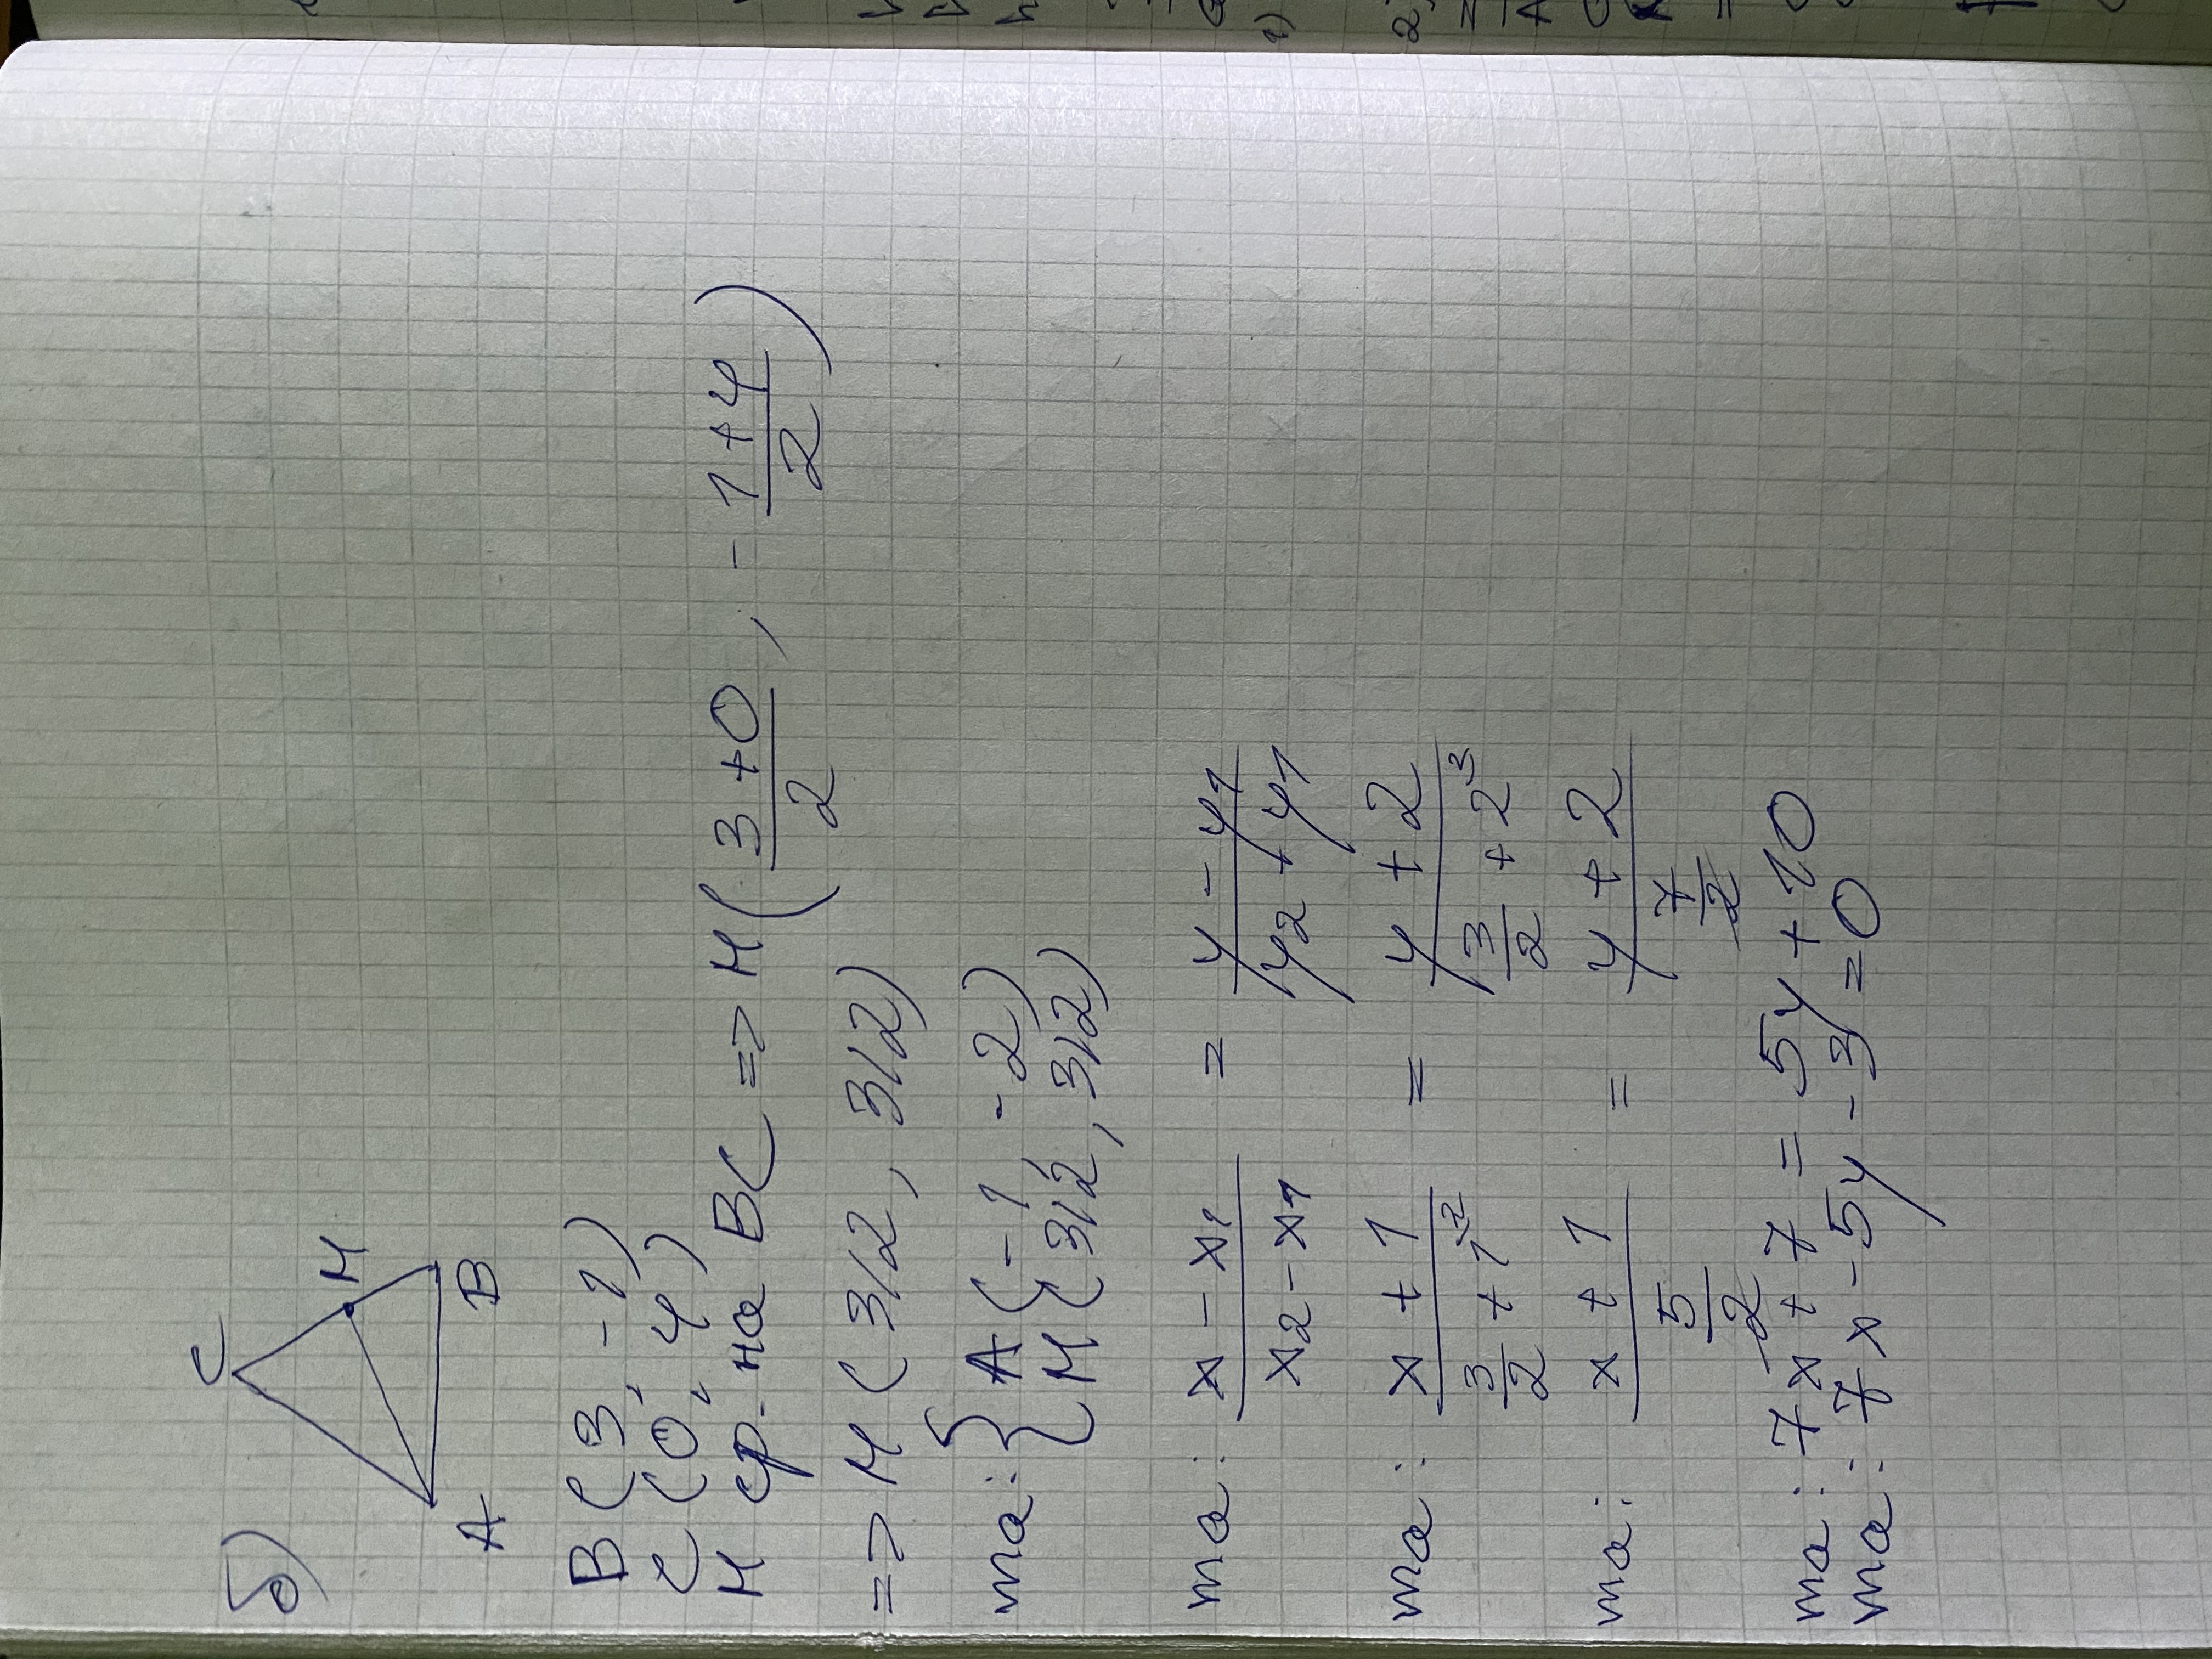 б)
C
M
A B
B(3, -1)
C(0, 4)
M ср. на BC => M((3+0)/2 ; -(1+4)/2)
=> M(3/2, 3/2)
ma: { A(-1, -2)
M(3/2, 3/2)
ma: (x - x1)/(x2 - x1) = (y - y1)/(y2 + y1)
ma: (x + 1)/(3/2 + 1^2) = (y + 2)/(3/2 + 2^3)
ma: (x + 1)/(5/2) = (y + 2)/(7/2)
ma: 7x + 7 = 5y + 10
ma: 7x - 5y - 3 = 0